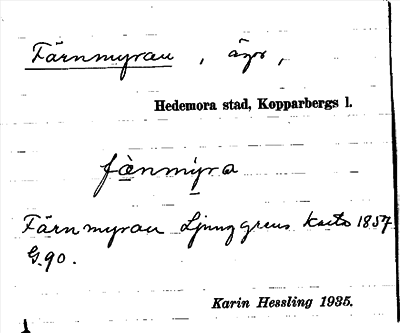 Färnmyran, ägor,
Hedemora stad, Kopparbergs l.
fànmýra
Färnmyran Ljunggrens karta 1857
G.90.
Karin Hessling 1935.